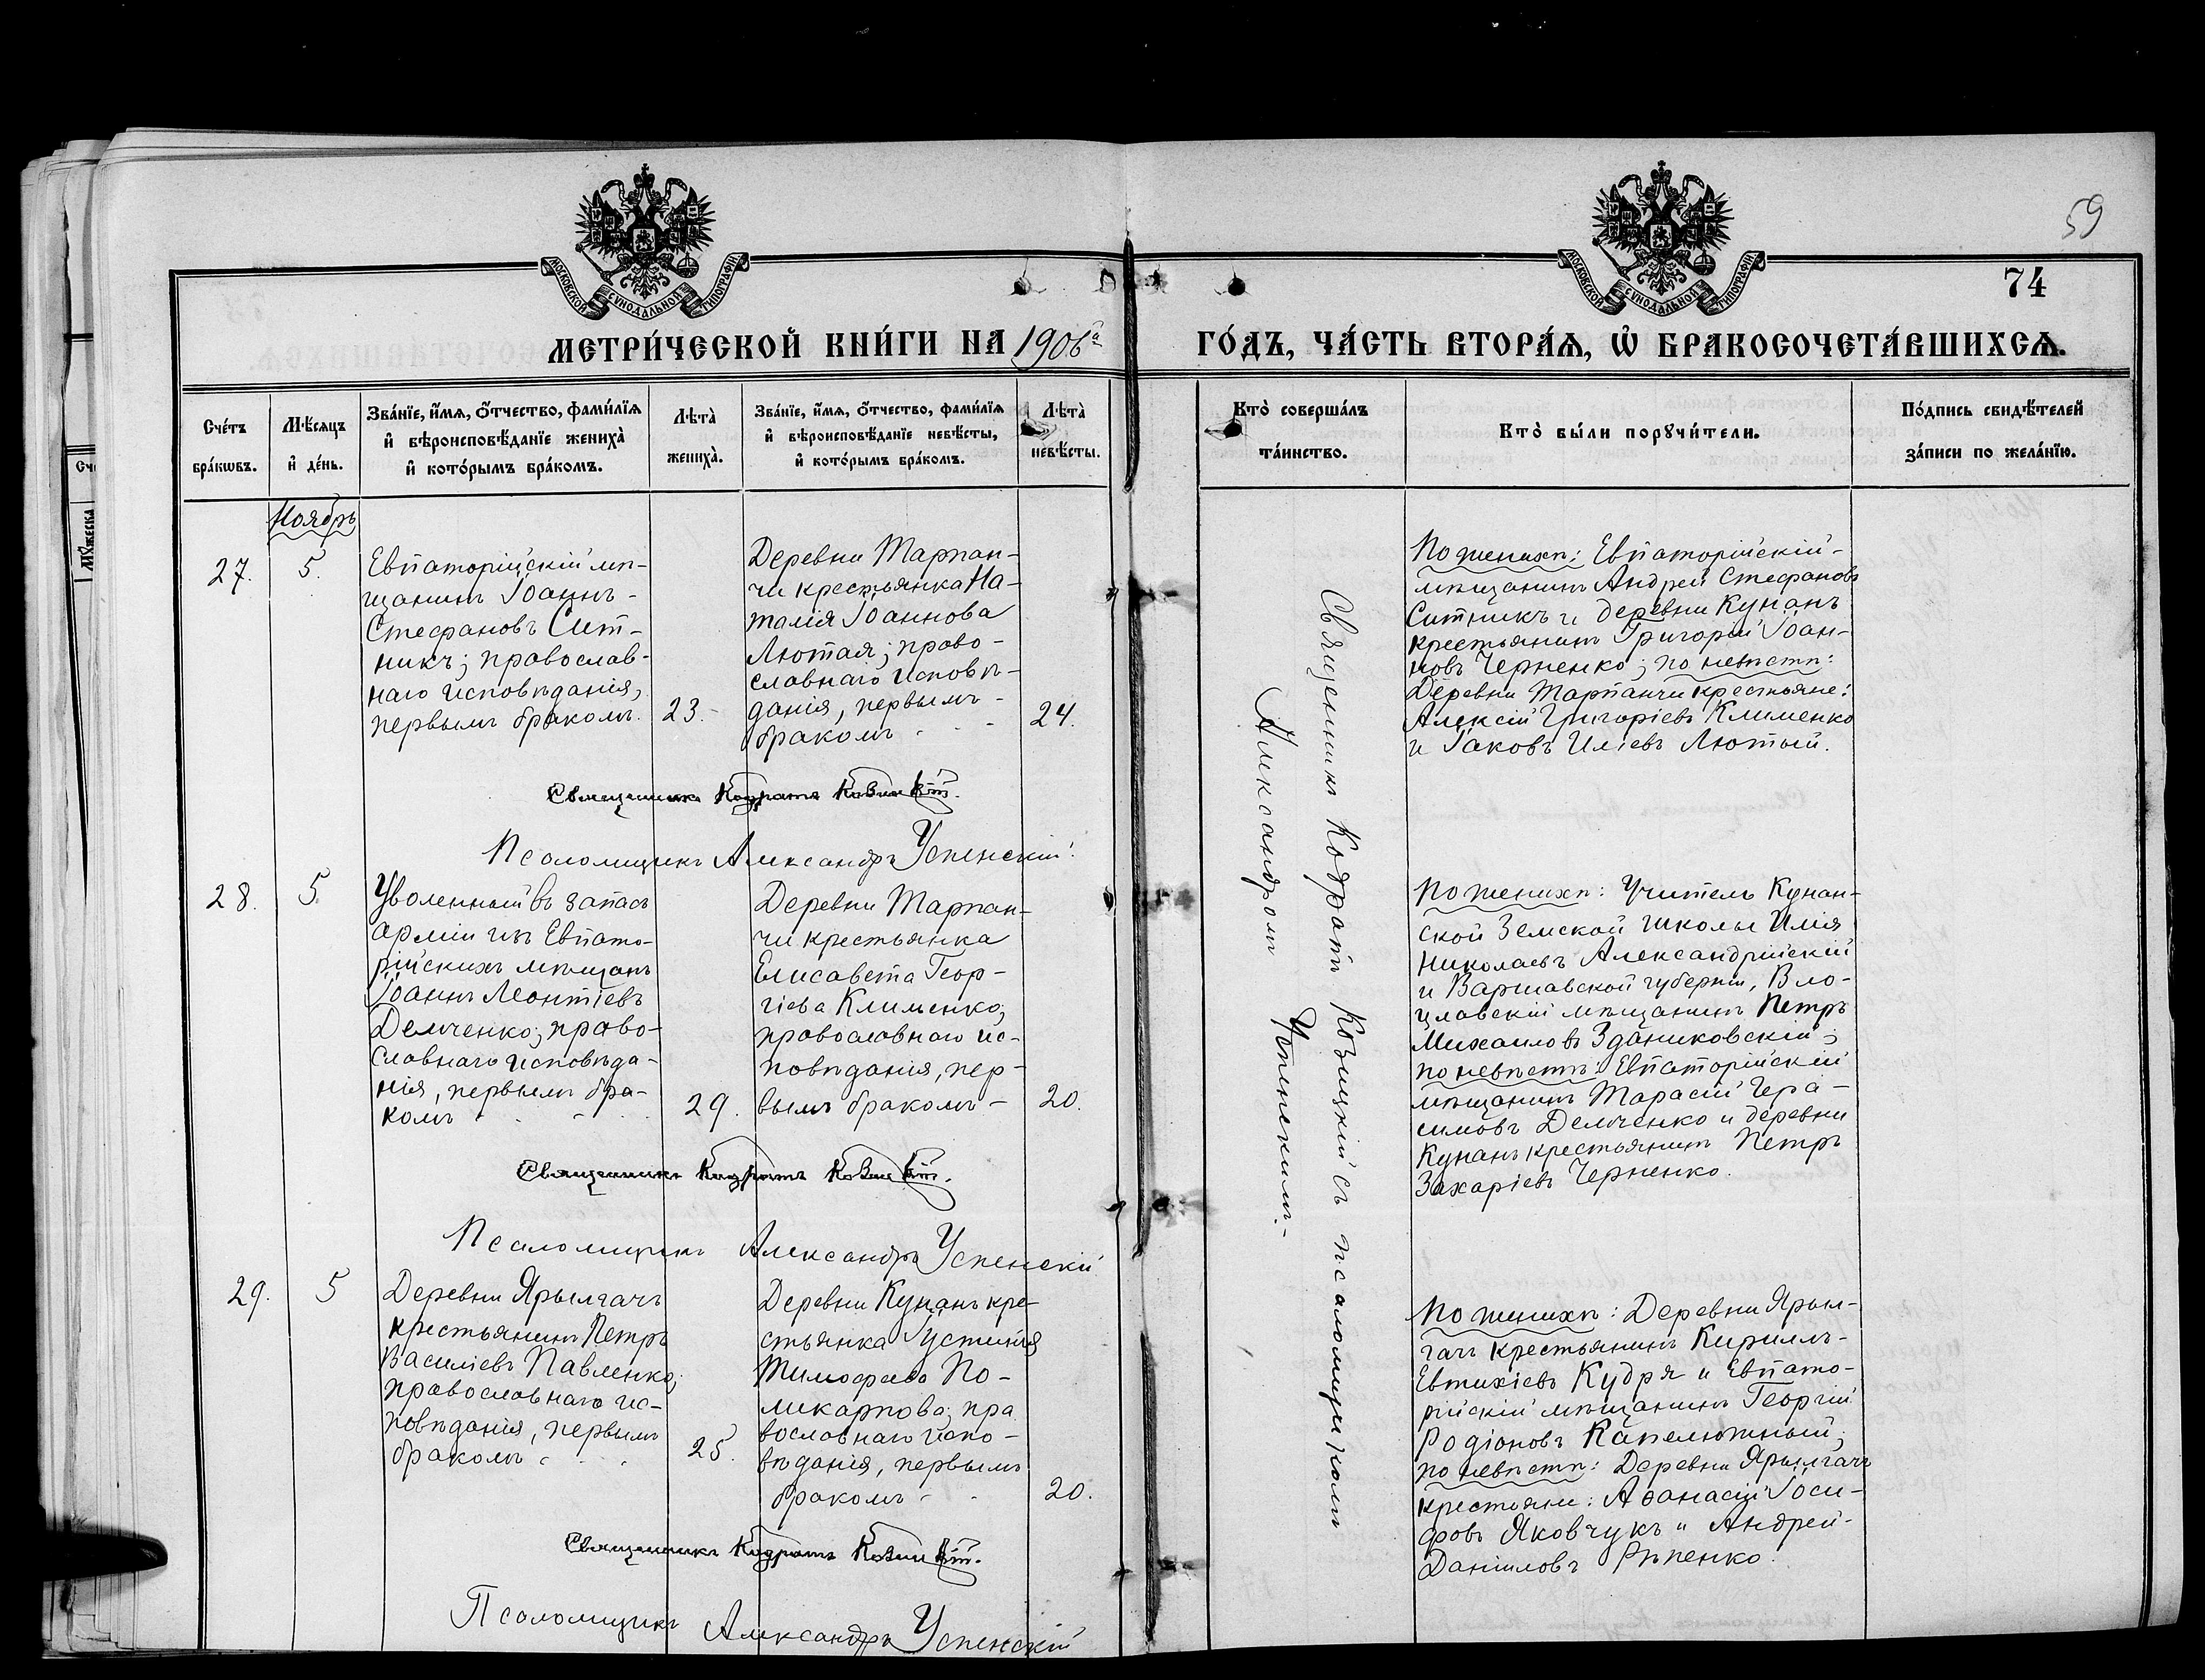 59
74
МОСКОВСКОЙ СѴНОДАЛЬНОЙ ТИПОГРАФІИ
МОСКОВСКОЙ СѴНОДАЛЬНОЙ ТИПОГРАФІИ
МЕТРИ́ЧЕСКОЙ КНИ́ГИ НА 1906й ГО́ДЪ, ЧА́СТЬ ВТОРА́Ѧ, Ѽ БРАКОСОЧЕТА́ВШИХСѦ.
Сче́тъ
бра́кѡвъ.
Мѣ́сѧцъ
и҆ де́нь.
Зва́нїе, и҆́мѧ, ѻ҆́тчество, фами́лїѧ
и҆ вѣроисповѣ́данїе жениха̀
и҆ кото́рымъ бра́комъ.
Лѣта̀
жениха̀.
Зва́нїе, и҆́мѧ, ѻ҆́тчество, фами́лїѧ
и҆ вѣроисповѣ́данїе невѣ́сты,
и҆ кото́рымъ бра́комъ.
Лѣта̀
невѣ́сты.
Кто̀ соверша́лъ
та́инство.
Кто̀ бы́ли порꙋчи́тели.
По́дпись свидѣ́телей
за́писи по жела́нїю.
Ноябрь
27.
5.
Евпаторійскій мѣ-
щанинъ Іоаннъ
Стефановъ Сит-
никъ; православ-
наго исповѣданія,
первымъ бракомъ.
23.
Деревни Тарпан-
чи крестьянка На-
талія Іоаннова
Лютая; право-
славнаго исповѣ-
данія, первымъ
бракомъ
24.
По женихѣ: Евпаторійскій
мѣщанинъ Андрей Стефановъ
Ситникъ и деревни Кунанъ
крестьянинъ Григорій Іоан-
новъ Черненко; по невѣстѣ:
Деревни Тарпанчи крестьяне:
Алексій Григоріевъ Клименко
и Іаковъ Иліевъ Лютый.
Священникъ Кодратъ
Псаломщикъ Александръ Успенскій.
28.
5.
Уволенный въ запасъ
арміи изъ Евпато-
рійскихъ мѣщанъ
Іоаннъ Леонтіевъ
Демченко; право-
славнаго исповѣда-
нія, первымъ бра-
комъ
29.
Деревни Тарпан-
чи крестьянка
Елисавета Геор-
гіева Клименко;
православнаго ис-
повѣданія, пер-
вымъ бракомъ
20.
По женихѣ: Учитель Кунан-
ской Земской школы Илія
Николаевъ Александрійскій
и Варшавской губерніи, Вло-
цлавскій мѣщанинъ Петръ
Михаиловъ Здѣниковскій;
по невѣстѣ: Евпаторійскій
мѣщанинъ Тарасій Гера-
симовъ Демченко и деревни
Кунанъ крестьянинъ Петръ
Захаріевъ Черненко.
Священникъ Кодратъ
Псаломщикъ Александръ Успенскій
29.
5
Деревни Ярылгачъ
крестьянинъ Петръ
Василіевъ Павленко;
православнаго ис-
повѣданія, первымъ
бракомъ
25.
Деревни Кунанъ кре-
стьянка Іустинія
Тимофеева По-
ликарпова; пра
вославнаго испо-
вѣданія, первымъ
бракомъ
20.
По женихѣ: Деревни Ярыл-
гачъ крестьянинъ Кириллъ
Евтихіевъ Кудря и Евпато-
рійскій мѣщанинъ Георгій
Родіоновъ Капелюжный;
по невѣстѣ: Деревни Ярылгачъ
крестьяне: Аѳанасій Іоси-
фовъ Яковчукъ и Андрей
Даніиловъ Рѣпенко.
Священникъ Кодратъ
Псаломщикъ Александръ Успенскій
Священникъ Кодратъ съ псаломщикомъ
Александромъ Успенскимъ.
Сче
Мꙋжеска